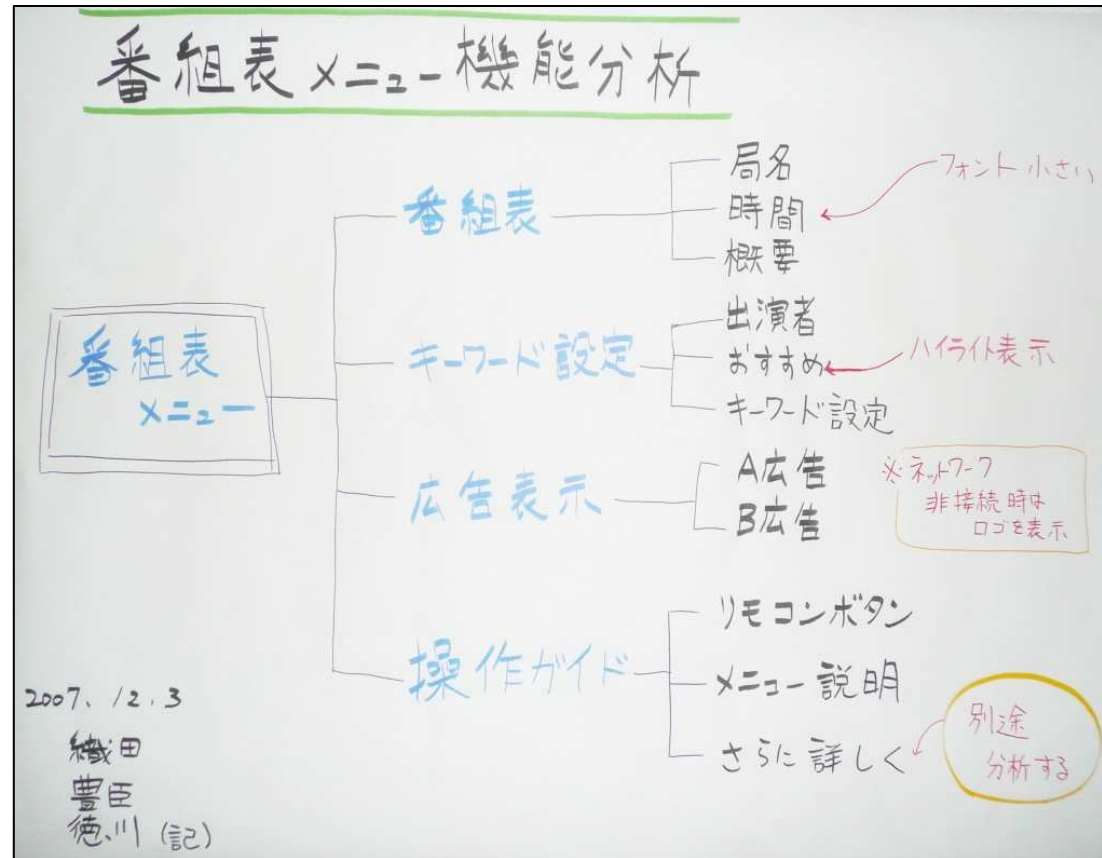 番組表メニュー機能分析
番組表
メニュー
番組表
局名
時間
概要
フォント小さい
キーワード設定
出演者
おすすめ
キーワード設定
ハイライト表示
広告表示
A広告
B広告
※ネットワーク
非接続時は
ロゴを表示
操作ガイド
リモコンボタン
メニュー説明
さらに詳しく
別途
分析する
2007.12.3
織田
豊臣
徳川(記)